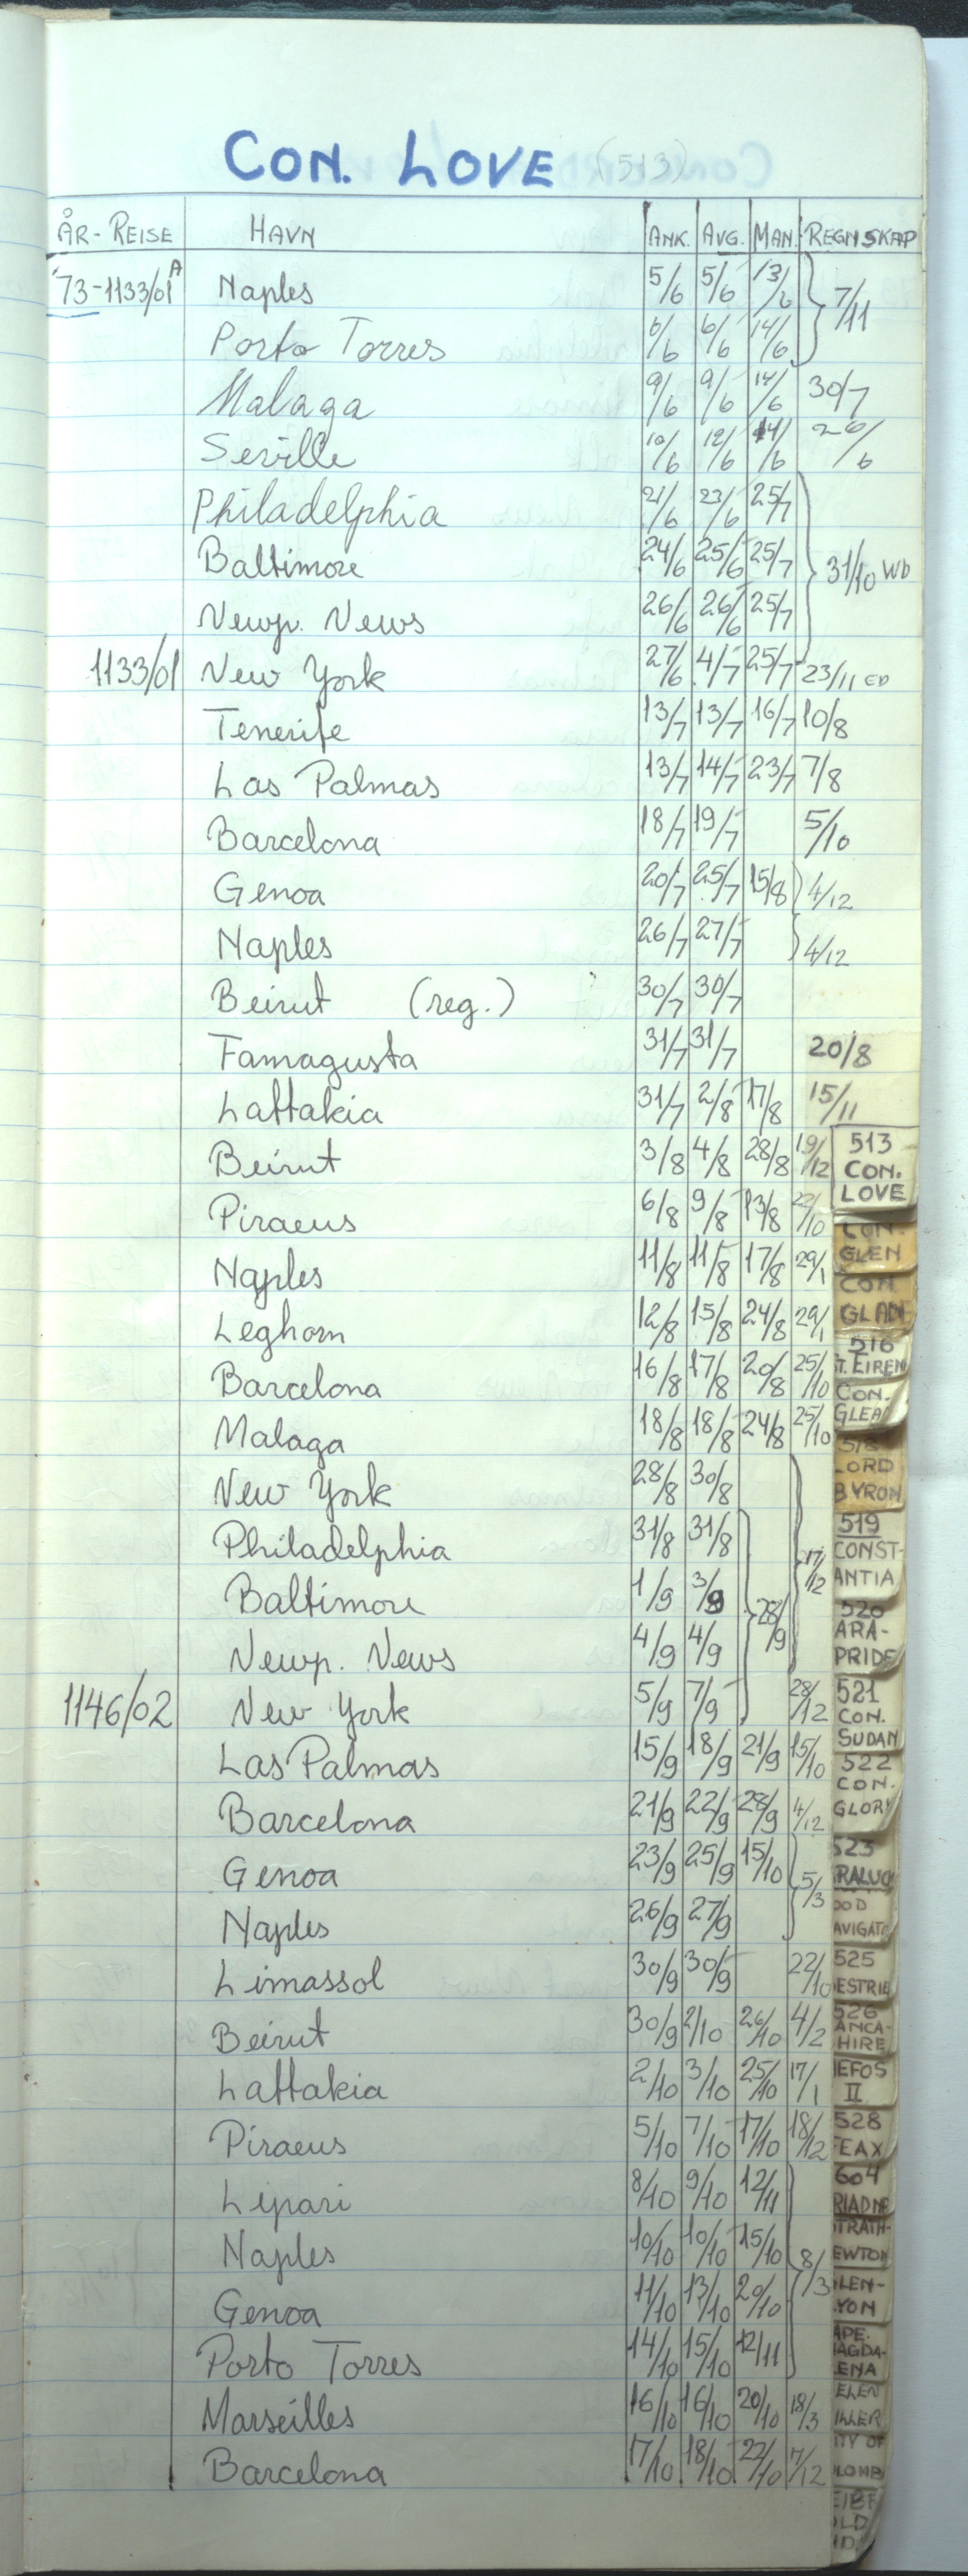 CON. LOVE (513)
ÅR-REISE HAVN ANK. AVG. MAN. REGNSKAP
'73-1133/01 A Naples 5/6 5/6 13/6 7/11
Porto Torres 6/6 6/6 14/6
Malaga 9/6 9/6 14/6 30/7
Seville 10/6 12/6 14/6 26/6
Philadelphia 21/6 23/6 25/7
Baltimore 24/6 25/6 25/7 31/10 WD
Newp. News 26/6 26/6 25/7
1133/01 New York 27/6 4/7 25/7 23/11 CD
Tenerife 13/7 13/7 16/7 10/8
Las Palmas 13/7 14/7 23/7 7/8
Barcelona 18/7 19/7 5/10
Genoa 20/7 25/7 15/8 4/12
Naples 26/7 27/7 4/12
Beirut (reg.) 30/7 30/7
Famagusta 31/7 31/7 20/8
Lattakia 31/7 2/8 17/8 15/11
Beirut 3/8 4/8 28/8 19/12
Piraeus 6/8 9/8 13/8 22/10
Naples 11/8 11/8 17/8 29/1
Leghorn 12/8 15/8 24/8 29/1
Barcelona 16/8 17/8 20/8 25/10
Malaga 18/8 18/8 24/8 25/10
New York 28/8 30/8
Philadelphia 31/8 31/8 17/12
Baltimore 1/9 3/9 28/9
Newp. News 4/9 4/9
1146/02 New York 5/9 7/9 28/12
Las Palmas 15/9 18/9 21/9 15/10
Barcelona 21/9 22/9 28/9 4/12
Genoa 23/9 25/9 15/10 5/3
Naples 26/9 27/9
Limassol 30/9 30/9 22/10
Beirut 30/9 2/10 26/10 4/2
Lattakia 2/10 3/10 25/10 17/1
Piraeus 5/10 7/10 17/10 18/12
Lipari 8/10 9/10 12/11
Naples 10/10 10/10 15/10 8/3
Genoa 11/10 13/10 20/10
Porto Torres 14/10 15/10 12/11
Marseilles 16/10 16/10 20/10 18/3
Barcelona 17/10 18/10 22/10 7/12
513
CON.
LOVE
CON.
GLEN
CON
GLADE
516
ST. EIREN
CON.
GLEA
518
LORD
BYRON
519
CONST-
ANTIA
520
ARA-
PRIDE
521
CON.
SUDAN
522
CON.
GLORY
523
RALUC
OOD
AVIGATO
525
ESTRIE
526
ANCA-
HIRE
EFOS
II
528
FEAX
604
RIADNE
TRATH-
EWTON
LEN-
YON
APE.
AGDA-
ENA
ELEN
ILLER
ITY OF
LOMB